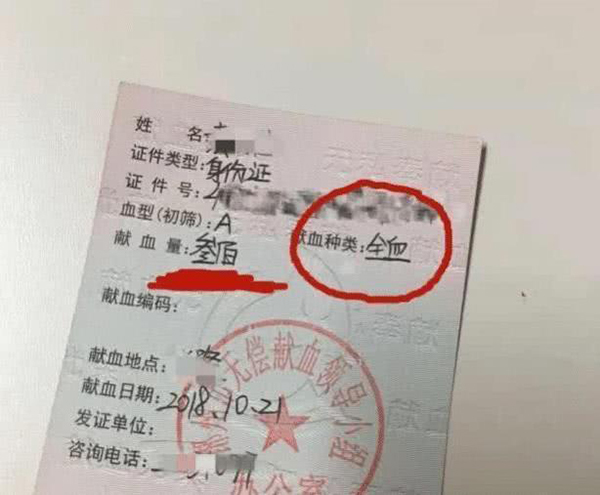 姓 名:
证件类型:身份证
证 件 号:
血型(初筛):A
献 血 量:叁佰 献血种类:全血
献血编码:
献血地点:
献血日期:2018.10.21
发证单位:
咨询电话:
无偿献血领导小组
办公室